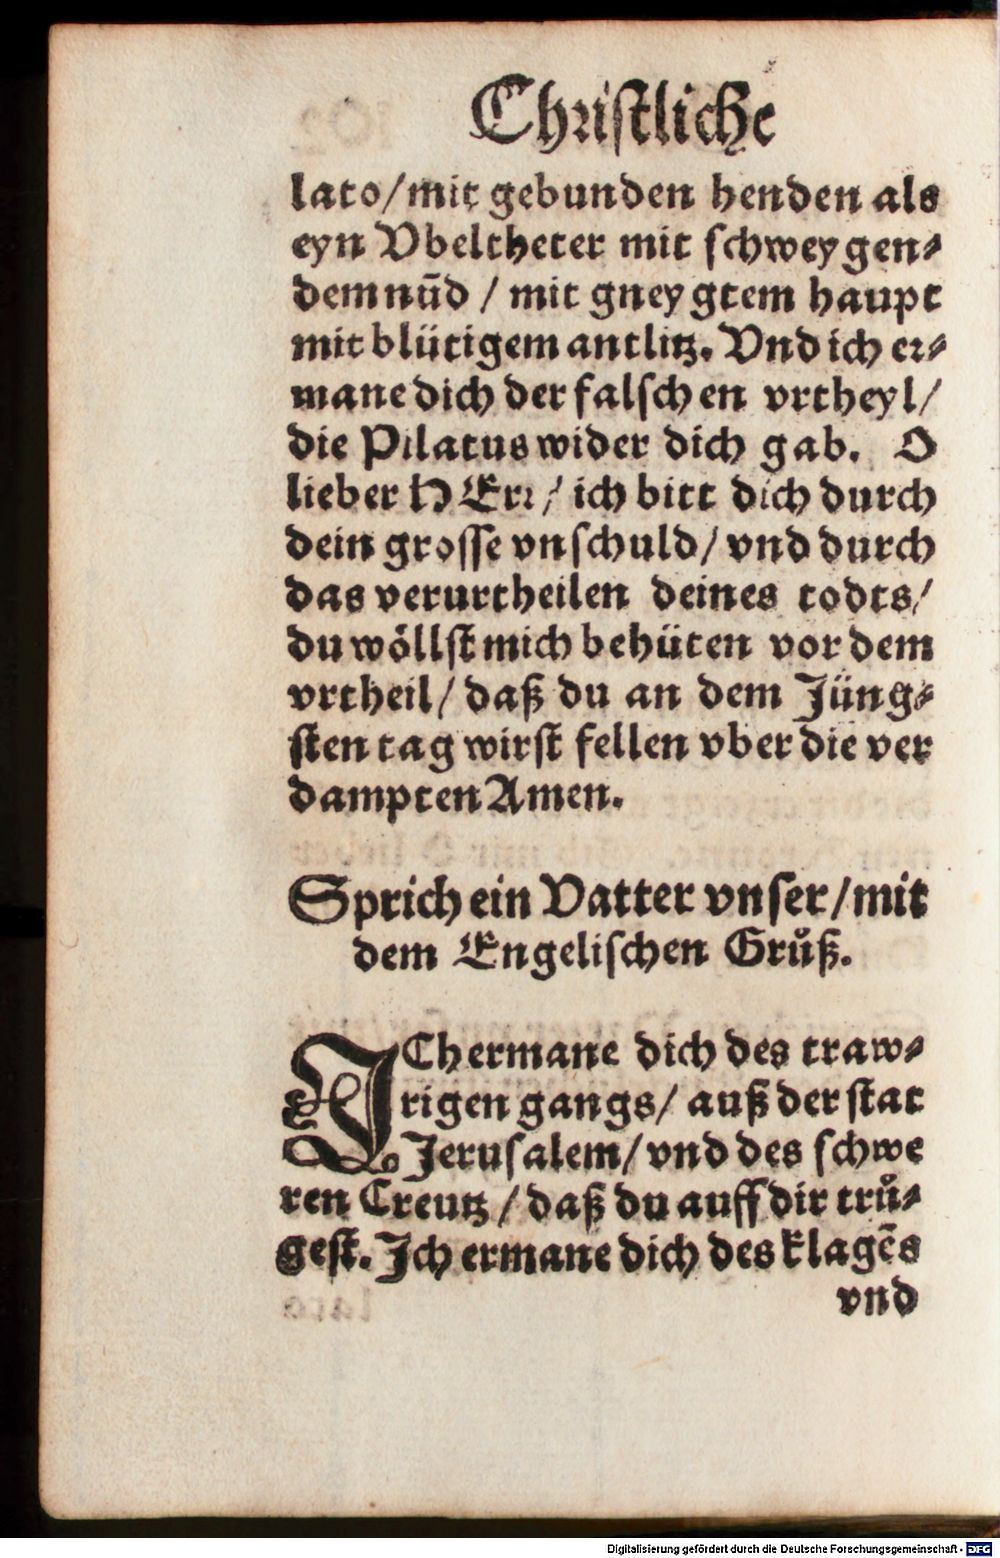 Christliche
lato/mit gebunden henden als
eyn Vbeltheter mit schweygen⸗
dem nūd / mit gneygtem haupt
mit blütigem antlitz. Vnd ich er⸗
mane dich der falschen vrtheyl/
die Pilatus wider dich gab. O
lieber HErr/ ich bitt dich durch
dein grosse vnschuld/ vnd durch
das verurtheilen deines todts/
du wöllst mich behüten vor dem
vrtheil/ daß du an dem Jüng⸗
sten tag wirst fellen vber die ver
dampten Amen.
Sprich ein Vatter vnser/mit
dem Engelischen Grůß.
ICh ermane dich des traw⸗
rigen gangs/ auß der stat
Jerusalem/ vnd des schwe
ren Creutz / daß du auff dir trů⸗
gest. Ich ermane dich des klagēs
vnd
Digitalisierung gefördert durch die Deutsche Forschungsgemeinschaft - DFG